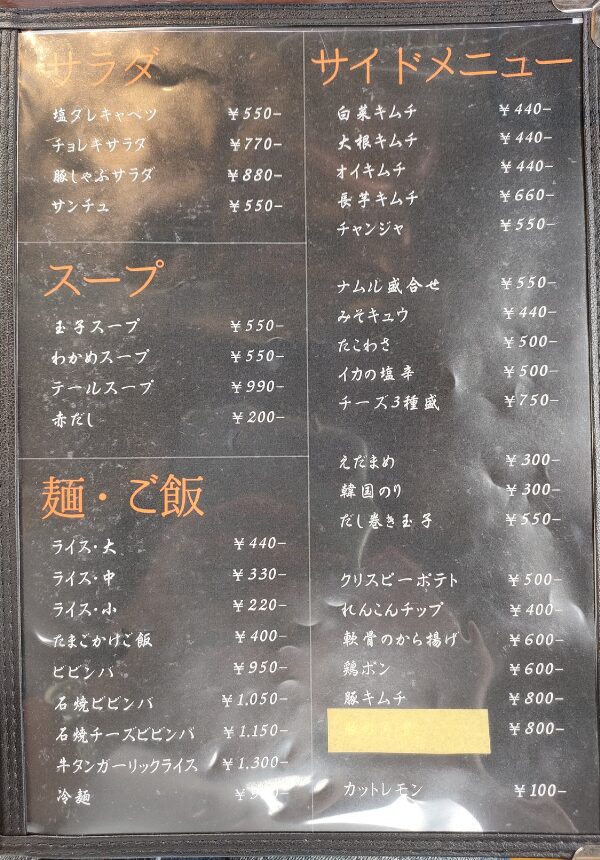 サラダ
塩ダレキャベツ ¥550-
チョレギサラダ ¥770-
豚しゃぶサラダ ¥880-
サンチュ ¥550-
スープ
玉子スープ ¥550-
わかめスープ ¥550-
テールスープ ¥990-
赤だし ¥200-
麺・ご飯
ライス・大 ¥440-
ライス・中 ¥330-
ライス・小 ¥220-
たまごかけご飯 ¥400-
ビビンバ ¥950-
石焼ビビンバ ¥1.050-
石焼チーズビビンバ ¥1.150-
牛タンガーリックライス ¥1.300-
冷麺
サイドメニュー
白菜キムチ ¥440-
大根キムチ ¥440-
オイキムチ ¥440-
長芋キムチ ¥660-
チャンジャ ¥550-
ナムル盛合せ ¥550-
みそキュウ ¥440-
たこわさ ¥500-
イカの塩辛 ¥500-
チーズ3種盛 ¥750-
えだまめ ¥300-
韓国のり ¥300-
だし巻き玉子 ¥550-
クリスピーポテト ¥500-
れんこんチップ ¥400-
軟骨のから揚げ ¥600-
鶏ポン ¥600-
豚キムチ ¥800-
¥800-
カットレモン ¥100-